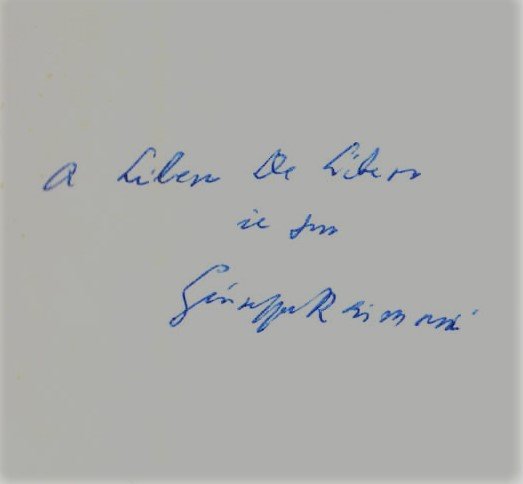 A Libero De Libero
il suo
Giuseppe Raimondi